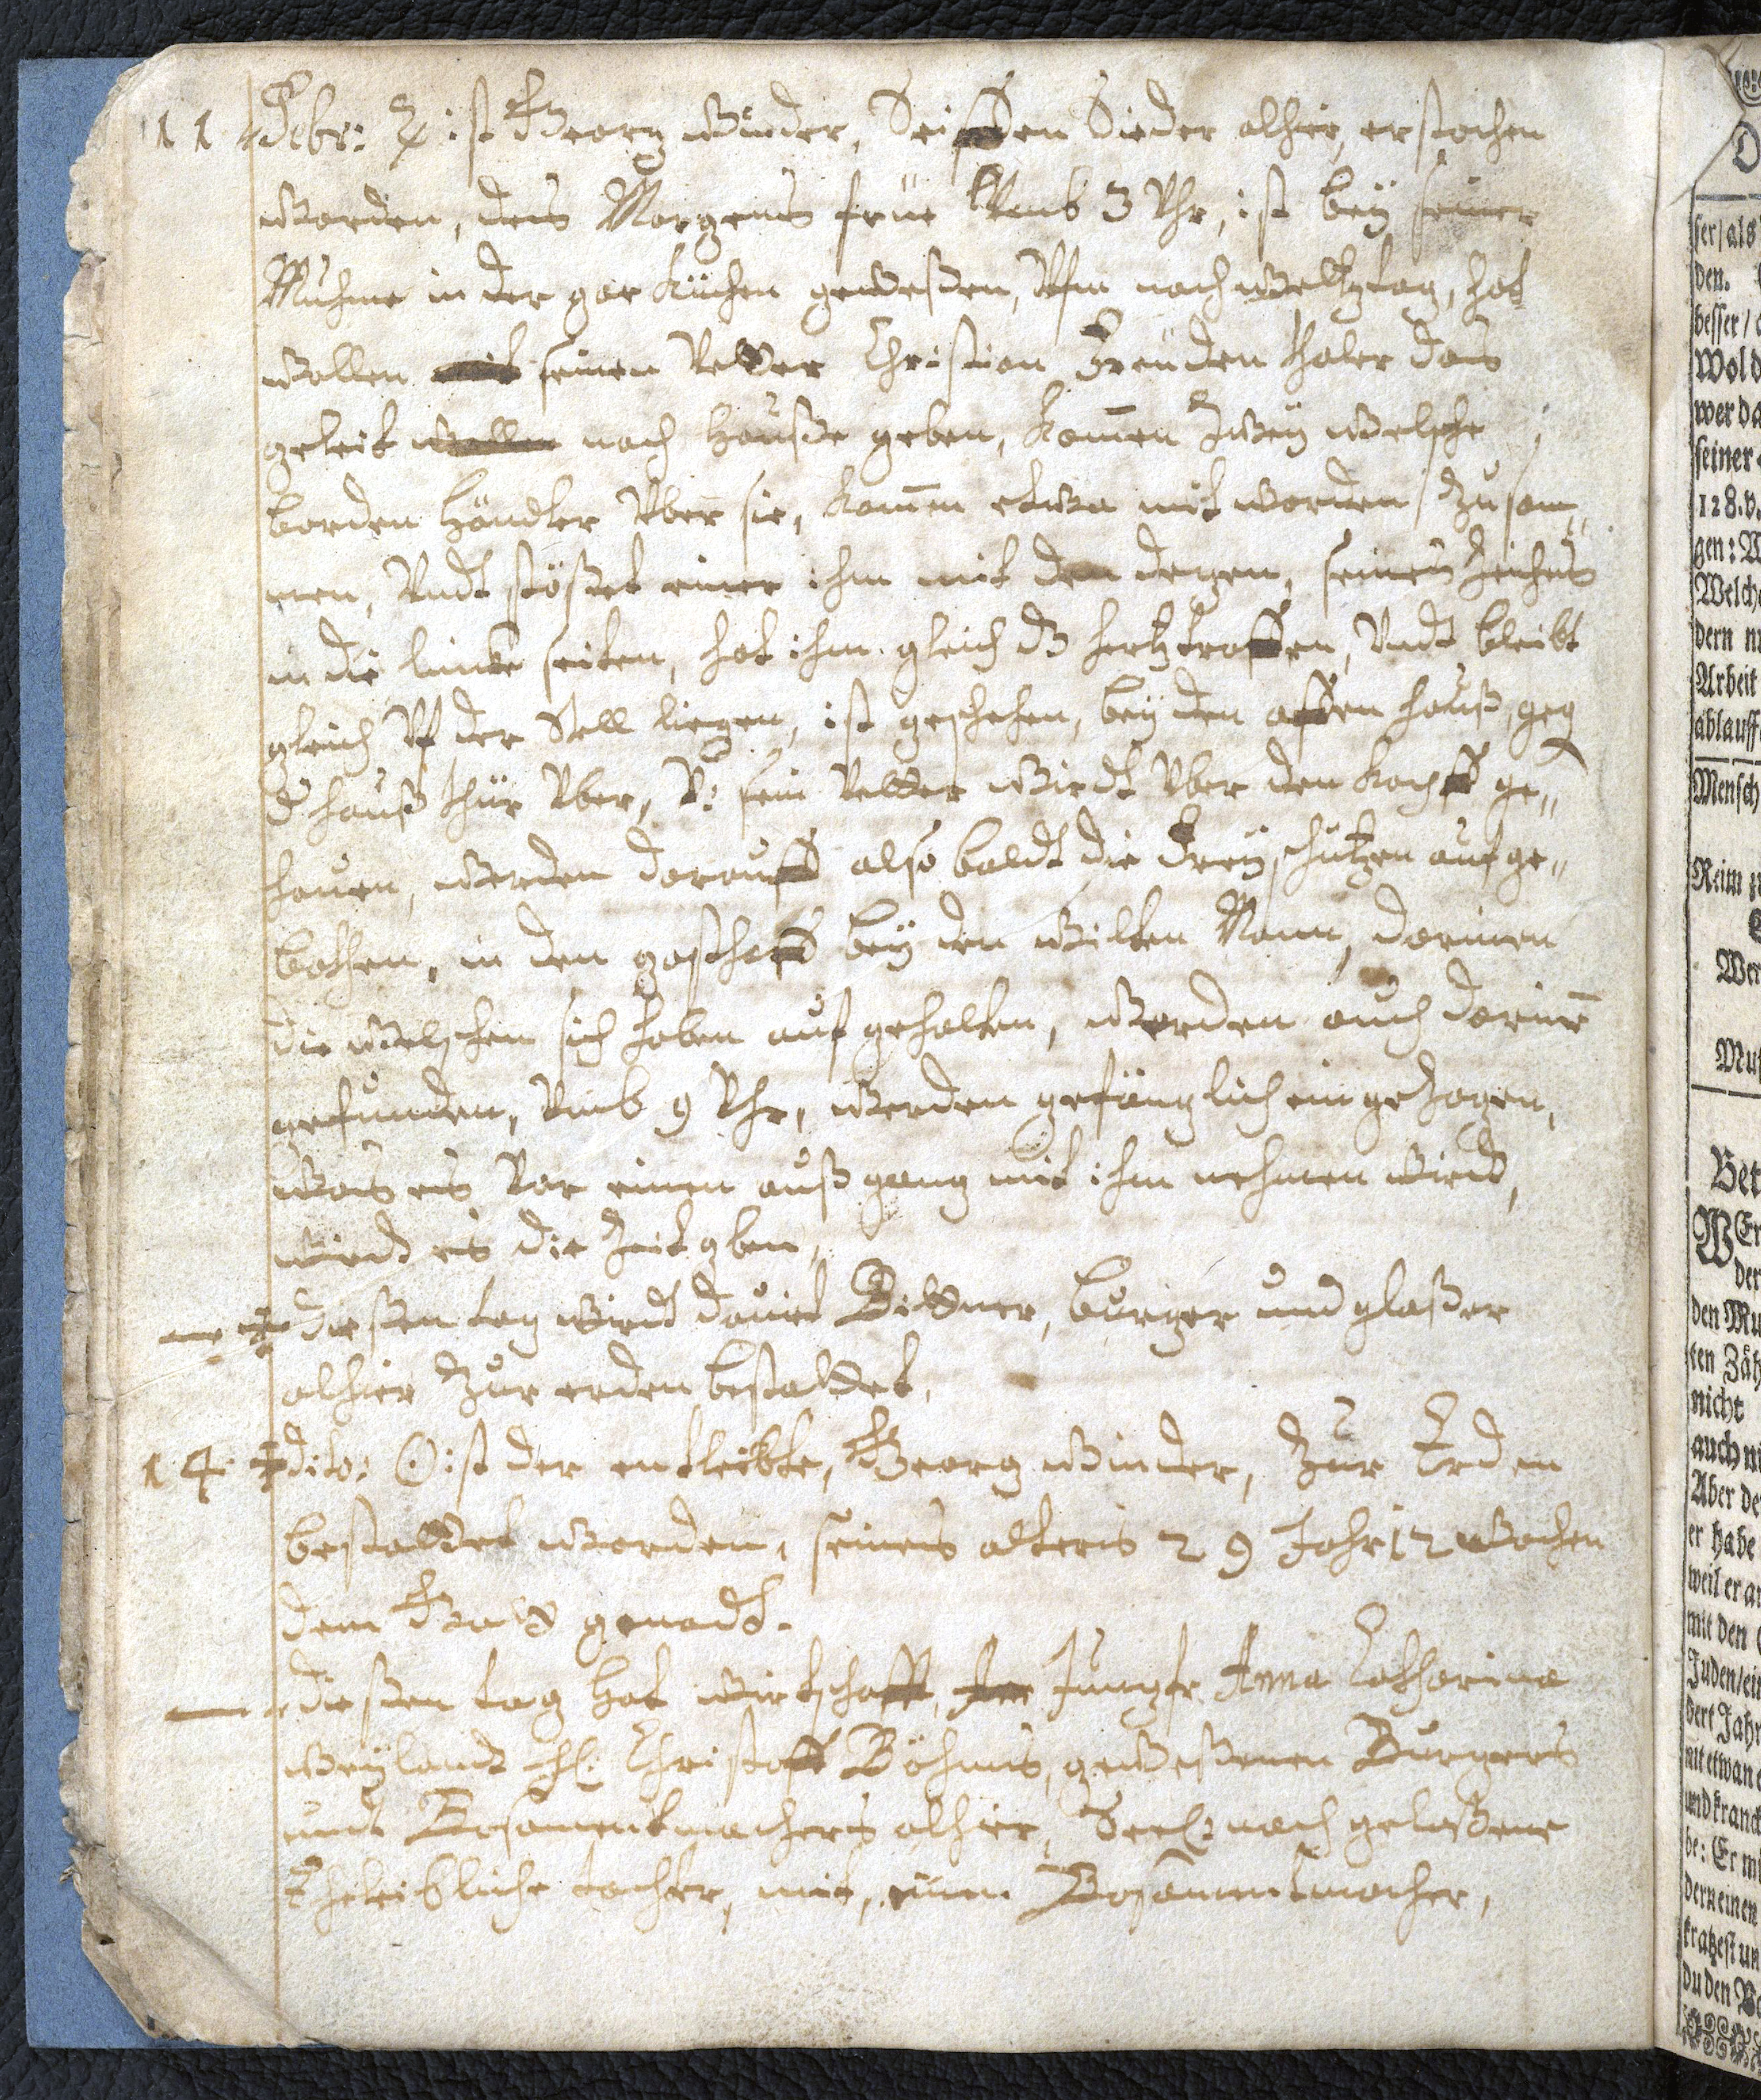 11 Febr: ♃ ist Georg Winder, Seiffen Sieder alhier, erstochen
worden, des Morgens früe Umb 3 Uhr, ist bey seiner
Muhme in der gar Küchen geweßen, Ufm nach hat
wollen mit seinen Vetter Christian Freüden thaler das
geleit wollen nach Hauße geben, komen Zwey welsche
borden Händler Uber sie, komen etwa mit worden Zusam„
men, Undt stößet einer ihm mit den degen, seines Zeichens
in die lincke seiten, hat ihm gleich dz hertz troffen, Undt bleibt
gleich Uf der Stell liegen, ist geschehen, bey den affen hauß, geg
d hauß thür Uber, V: sein Vetter wirdt Uber den Kopff ge„
hauen, werden darauff also baldt die Frey schützen auf ge„
bothen, in den gasthoff bey den wilten Mann, darinen
die welschen sich haben auf gehalten, werden auch darine
gefunden, Umb 9 Uhr, werden gefänglich ein gezogen,
was es Vor einen auß gang mit ihm nehmen wird,
wirdt es die Zeit gben,
— dießen tag wird dauit Bittner, burger und glaßer
alhier Zur erden bestattet,
14 dito: ☉ ist der entleibte, Georg Winder, Zur Erden
bestattet worden, seines alters 29 Jahr 12 wochen
dem Gott genadt.
— dießen tag Hat wirtschafft, Jungfr Anna Catharina
weylandt Christoff Böhms, geweßenen Burgers
undt Bosamentmachers alhier, Seel: nach gelaßene
Eheleibliche tochter, mit, einen Bosamentmacher,
ser/als
den.
besser/
Wol d
wer da
seiner
128.v.
gen: W
Welch
dern n
Arbeit
ablauff
Mensch
Reim
Wer
Mus
Bet
WEr
der
den Mu
ten Zäh
nicht
auch ni
Aber de
er habe
weil er a
mit den
Juden/ein
dert Jahr
mit etwan
und kranck
be: Er mi
dern einen
kratzest un
du den